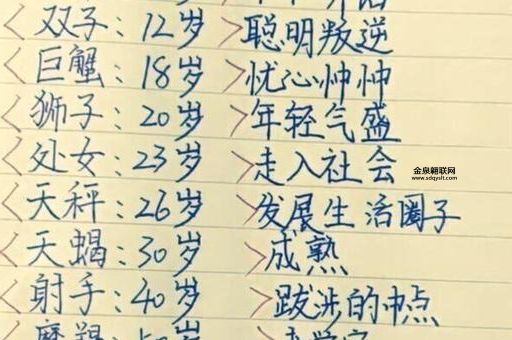 <双子:12岁>聪明叛逆
<巨蟹:18岁>忧心忡忡
<狮子:20岁>年轻气盛
<处女:23岁>走入社会
金泉翱联网
www.sdqyslt.com
<天秤:26岁>发展生活圈子
<天蝎:30岁>成熟
<射手:40岁>跋涉的中点